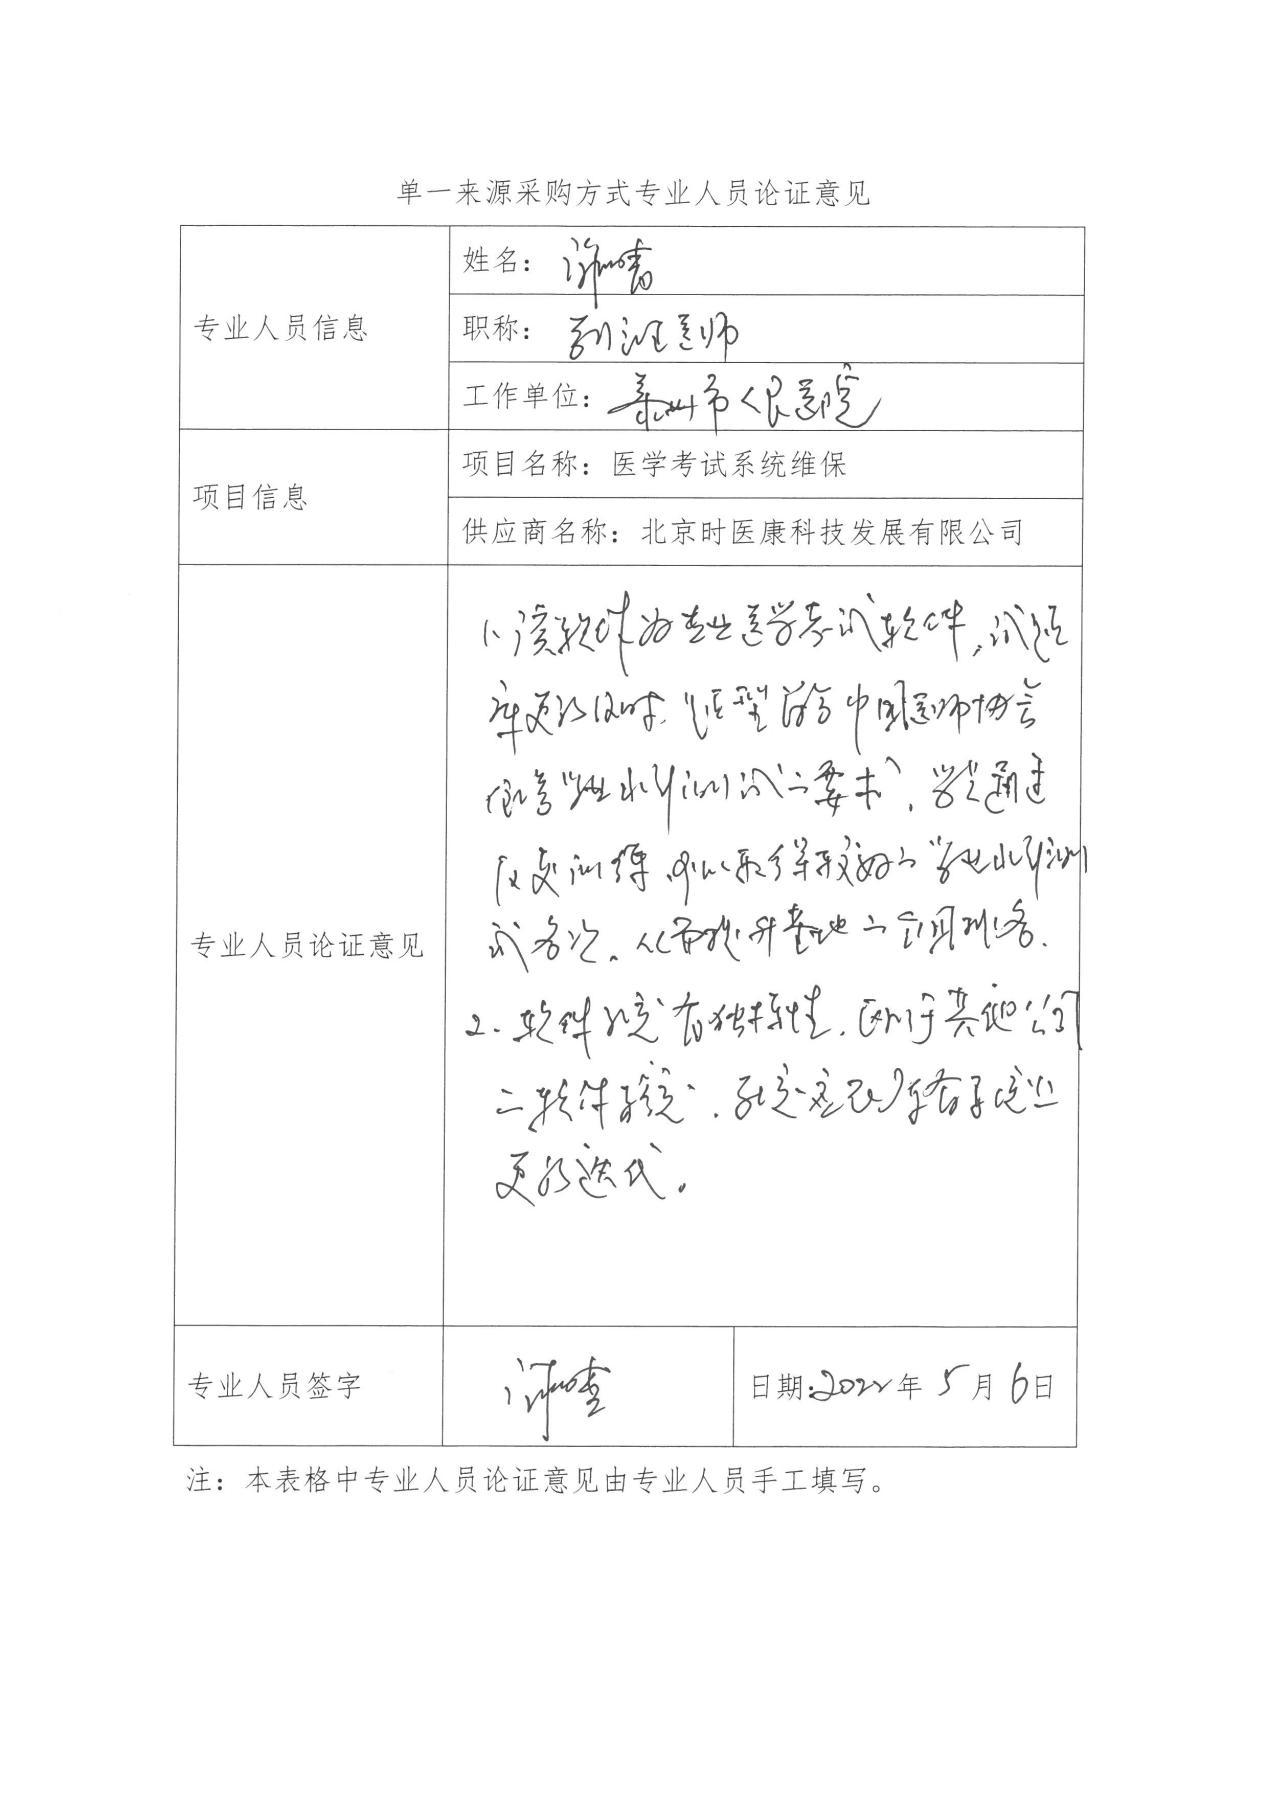 单一来源采购方式专业人员论证意见
专业人员信息
姓名：许
职称：副主任医师
工作单位：泰州市人民医院
项目信息
项目名称：医学考试系统维保
供应商名称：北京时医康科技发展有限公司
专业人员论证意见
1、该软件为专业医学考试软件，试题
库更新及时，题型符合中国医师协会
业水平测试的要求，学员通过
反复训练，可以取得较好的业水平测
试名次，从而提升基地的全国排名。
2、软件系统有独特性，区别于其他公司
的软件系统，
更新迭代。
专业人员签字
许
日期：2022年5月6日
注：本表格中专业人员论证意见由专业人员手工填写。